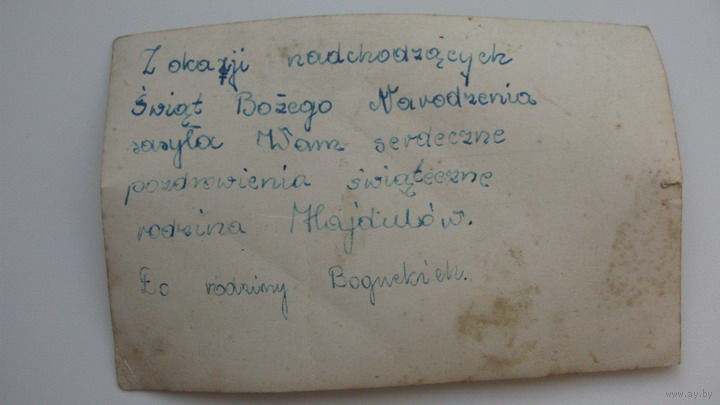 Z okazji nadchodzących
Świąt Bożego Narodzenia
zasyła Wam serdeczne
pozdrowienia świąteczne
rodzina Hajdulów.
Do rodziny Boguckich.
www.ay.by